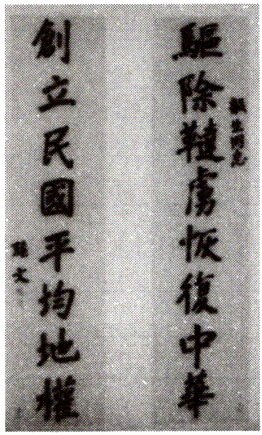 驅除韃虜恢復中華
同志
創立民國平均地權
孫文